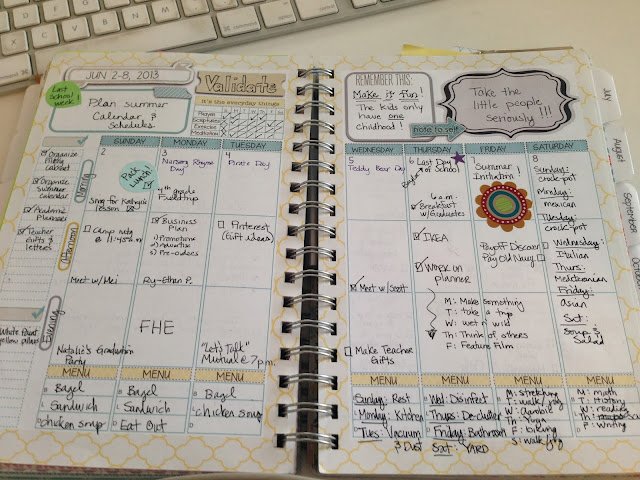 JUN 2-8, 2013
Last
School
week!
Plan summer
Calendar &
Schedules
Validate
It's the everyday things
Prayer
Scriptures
Exercise
REMEMBER THIS:
Make it fun!
The kids only
have one
childhood!
note to self
Take the
little people
seriously!!!
July
August
Organize
Filing
Cabinet
Organize
Summer
calendar
Academic
Planner
Teacher
Gifts &
letters
White Paint
yellow
Morning
Afternoon
Evening
SUNDAY
2
Song for
lesson
Camp mtg
@ 11:45 a.m.
Meet w/Mei
Natalie's Graduation
Party
MENU
Bagel
Sandwich
chicken soup
MONDAY
3
Nursery Rhyme
Day
Pack
Lunch!
4th grade
Fieldtrip
Business
Plan
1) Promotions
2) Advertise
3) Pre-orders
Ry-Ethan P.
FHE
MENU
Bagel
Sandwich
Eat Out
TUESDAY
4
Pirate Day
Pinterest
(Gift ideas)
"Let's Talk"
Mutual @ 7 p.m.
MENU
Bagel
chicken soup
WEDNESDAY
5
Teddy Bear Day
Meet w/Scott
Make Teacher
Gifts
MENU
Sunday: Rest
Monday: Kitchen
Tues: Vacuum
& Dust
THURSDAY
6
Last Day
of School
6 a.m.
Breakfast
w/Graduates
IKEA
Work on
planner
M: Make something
T: take a trip
W: wet n' wild
Th: Think of others
F: Feature Film
MENU
Wed: Disinfect
Thurs: De-clutter
Friday: Bathroom
Sat: YARD
FRIDAY
7
Summer
Initiation!
Payoff Discover
Pay Old Navy
MENU
M: stretching
T: walk/jog
W: aerobic
Th: Yoga
F: biking
S: walk/jog
SATURDAY
8
Sunday:
crock-pot
Monday:
mexican
Tuesday:
crock-pot
Wednesday:
Italian
Thurs:
Friday:
Asian
Sat:
Soup &
Salad
MENU
M: math
T: History
W: reading
F: Writing